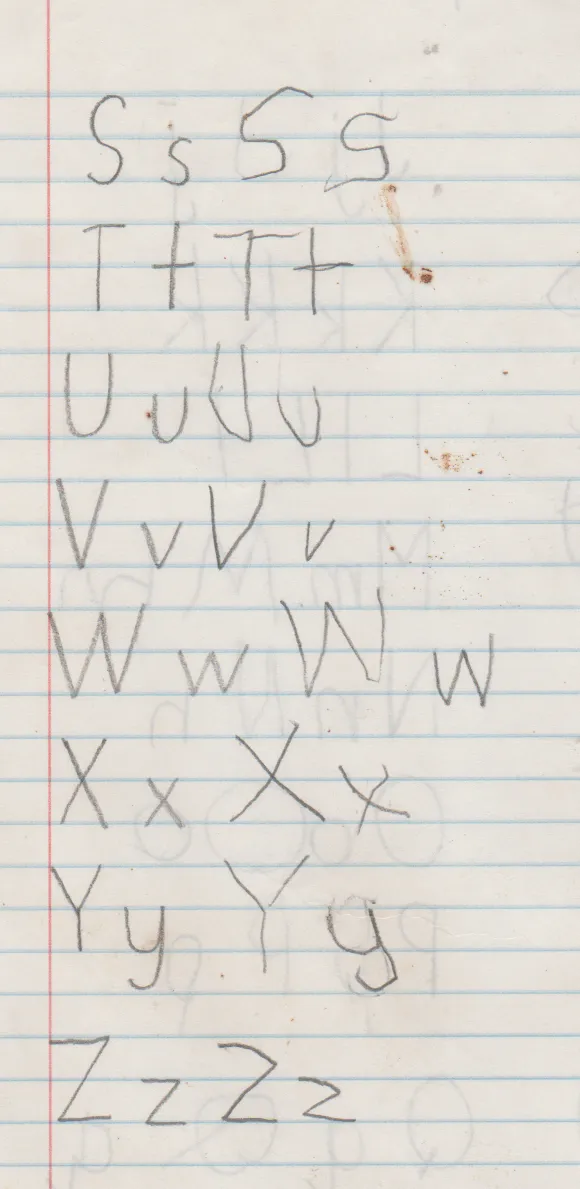 S s S s
T t T t
U u U u
V v V v
W w W w
X x X x
Y y Y y
Z z Z z